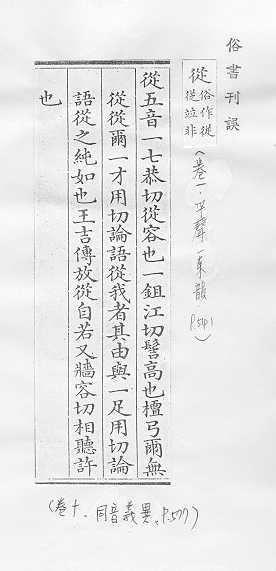 俗書刊誤
從俗作從
從並非
(卷一.平聲一東韻
P.541)
從五音一七恭切從容也一鉏江切髻高也檀弓爾無
從從爾一才用切論語從我者其由與一足用切論
語從之純如也王吉傳放從自若又牆容切相聽許
也
(卷十.同音義異。P.577)